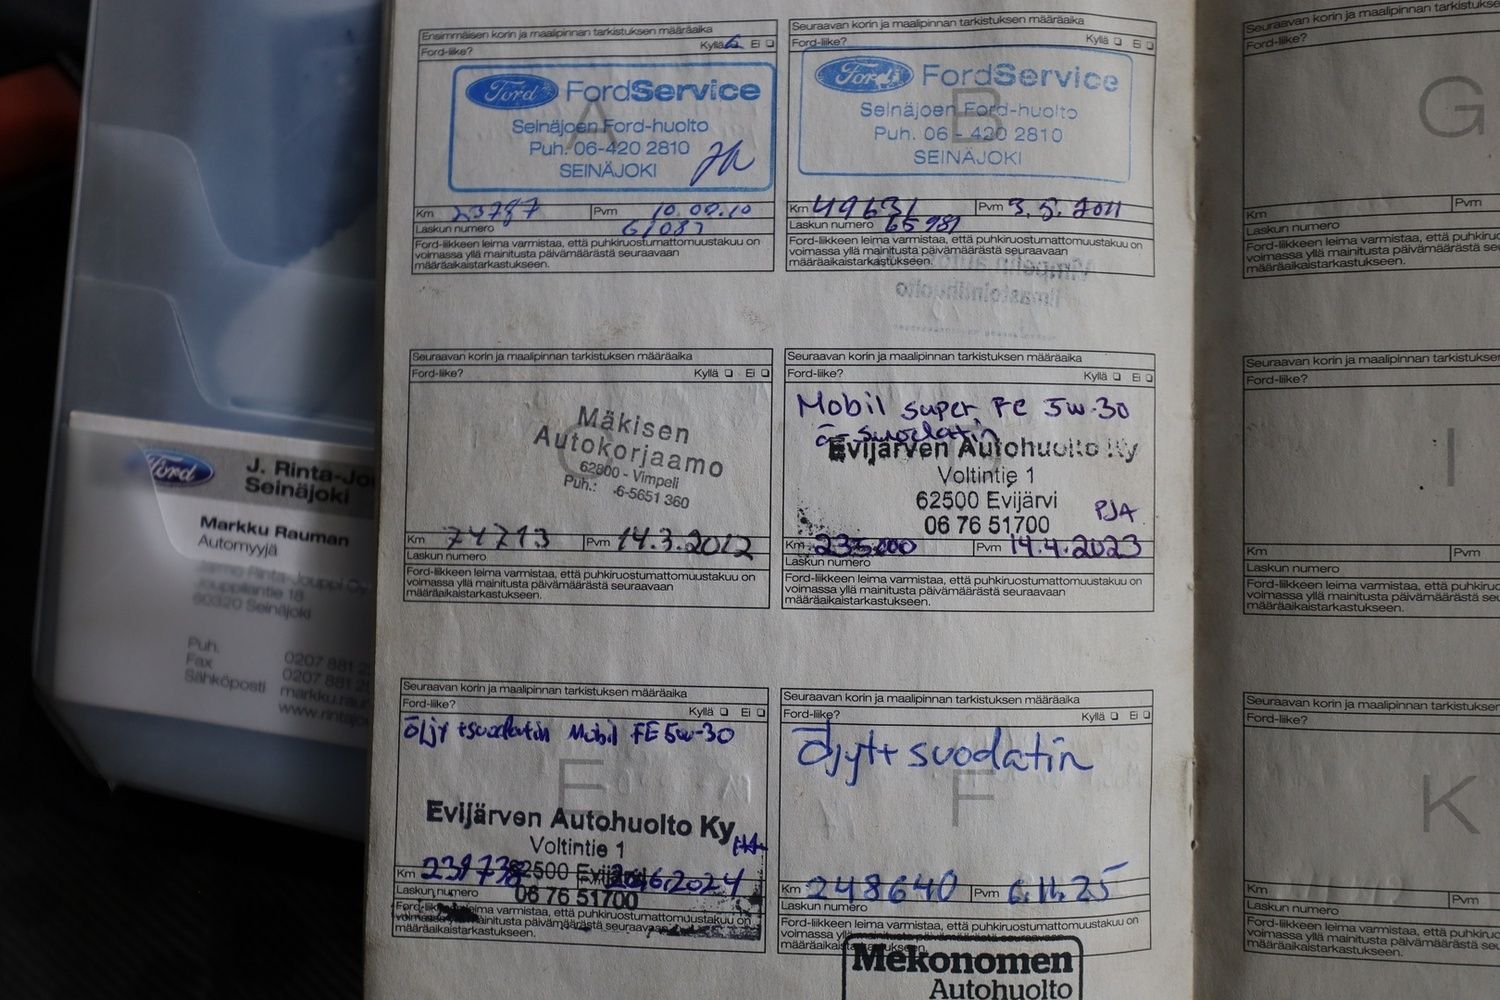 Ensimmäisen korin ja maalipinnan tarkistuksen määräaika
Ford-liike? Kyllä Ei
Ford FordService
A
Seinäjoen Ford-huolto
Puh. 06-420 2810
SEINÄJOKI
Km 23787 Pvm 10.09.10
Laskun numero 61087
Ford-liikkeen leima varmistaa, että puhkiruostumattomuustakuu on
voimassa yllä mainitusta päivämäärästä seuraavaan
määräaikaistarkastukseen.
Seuraavan korin ja maalipinnan tarkistuksen määräaika
Ford-liike? Kyllä Ei
Ford FordService
B
Seinäjoen Ford-huolto
Puh. 06 - 420 2810
SEINÄJOKI
Km 49631 Pvm 3.5.2011
Laskun numero 65981
Ford-liikkeen leima varmistaa, että puhkiruostumattomuustakuu on
voimassa yllä mainitusta päivämäärästä seuraavaan
määräaikaistarkastukseen.
Seuraavan korin ja maalipinnan tarkistuksen määräaika
Ford-liike? Kyllä Ei
Mäkisen
Autokorjaamo
62800 - Vimpeli
Puh.: -6-5651 360
Km 74713 Pvm 14.3.2012
Laskun numero
Ford-liikkeen leima varmistaa, että puhkiruostumattomuustakuu on
voimassa yllä mainitusta päivämäärästä seuraavaan
määräaikaistarkastukseen.
Seuraavan korin ja maalipinnan tarkistuksen määräaika
Ford-liike? Kyllä Ei
Mobil super FE 5w-30
ö-suodatin
Evijärven Autohuolto Ky
Voltintie 1
62500 Evijärvi
06 76 51700 PJA
Km 235000 Pvm 14.4.2023
Laskun numero
Ford-liikkeen leima varmistaa, että puhkiruostumattomuustakuu on
voimassa yllä mainitusta päivämäärästä seuraavaan
määräaikaistarkastukseen.
Seuraavan korin ja maalipinnan tarkistuksen määräaika
Ford-liike? Kyllä Ei
öljy +suodatin Mobil FE 5w-30
E
Evijärven Autohuolto Ky
Voltintie 1
62500 Evijärvi
Km 239738 Pvm 20.6.2024
Laskun numero 06 76 51700
Ford-liikkeen leima varmistaa, että puhkiruostumattomuustakuu on
voimassa yllä mainitusta päivämäärästä seuraavaan
määräaikaistarkastukseen.
Seuraavan korin ja maalipinnan tarkistuksen määräaika
Ford-liike? Kyllä Ei
Öljyt+ suodatin
F
Km 248640 Pvm 6.11.25
Laskun numero
Ford-liikkeen leima varmistaa, että puhkiruostumattomuustakuu on
voimassa yllä mainitusta päivämäärästä seuraavaan
määräaikaistarkastukseen.
Mekonomen
Autohuolto
Seuraavan korin ja maalipinnan tarkistuksen
Ford-liike?
G
Km Pvm
Laskun numero
Ford-liikkeen leima varmistaa, että
voimassa yllä mainitusta päivämäärästä
määräaikaistarkastukseen.
Seuraavan korin ja maalipinnan tarkistuksen
Ford-liike?
I
Km Pvm
Laskun numero
Ford-liikkeen leima varmistaa, että
voimassa yllä mainitusta päivämäärästä
määräaikaistarkastukseen.
Seuraavan korin ja maalipinnan tarkistuksen
Ford-liike?
K
Km Pvm
Laskun numero
Ford-liikkeen leima varmistaa, että
voimassa yllä mainitusta päivämäärästä
määräaikaistarkastukseen.
Ford J. Rinta-Jou
Seinäjoki
Markku Rauman
Automyyjä
Jarmo Rinta-Jouppi Oy
Jouppilantie 18
60320 Seinäjoki
Puh. 0207 881 2
Fax 0207 881 2
Sähköposti markku.rau
www.rintajo